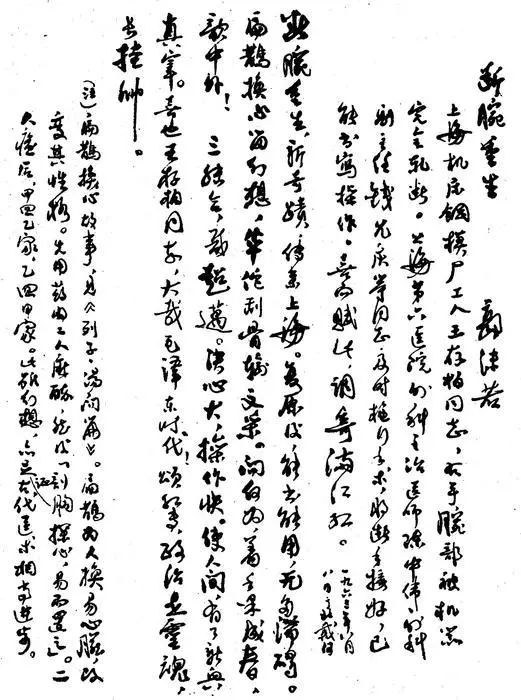 断腕重生 郭沫若
上海机床钢模厂工人王存柏同志,右手腕部被机器
完全轧断。上海第六医院外科主治医师陈中伟、外科
副主任钱允庆等同志及时施行手术,将断手接好,已
能书写操作。喜而赋此,调寄满江红。
一九六三年八月
八日
断腕重生,新奇迹,传来上海。复原后能书能用,无多滞碍。
扁鹊换心当幻想,华佗刮骨输文采。问何为着手果成春,
中外! 三结合,超迈。决心大,操作快。使人间有了新兴
真宰。幸也王存柏同志,大哉毛泽东时代!颂红专,政治是灵魂,
长挂帅。
(注)扁鹊换心故事,见列子·汤问篇。扁鹊为人换易心脏,改
变其性格。先用药酒令人麻醉,然后「剖胸探心,易而置之」。二
人痊后,甲回乙家,乙回甲家。此虽幻想,亦足证古代医术相当进步。